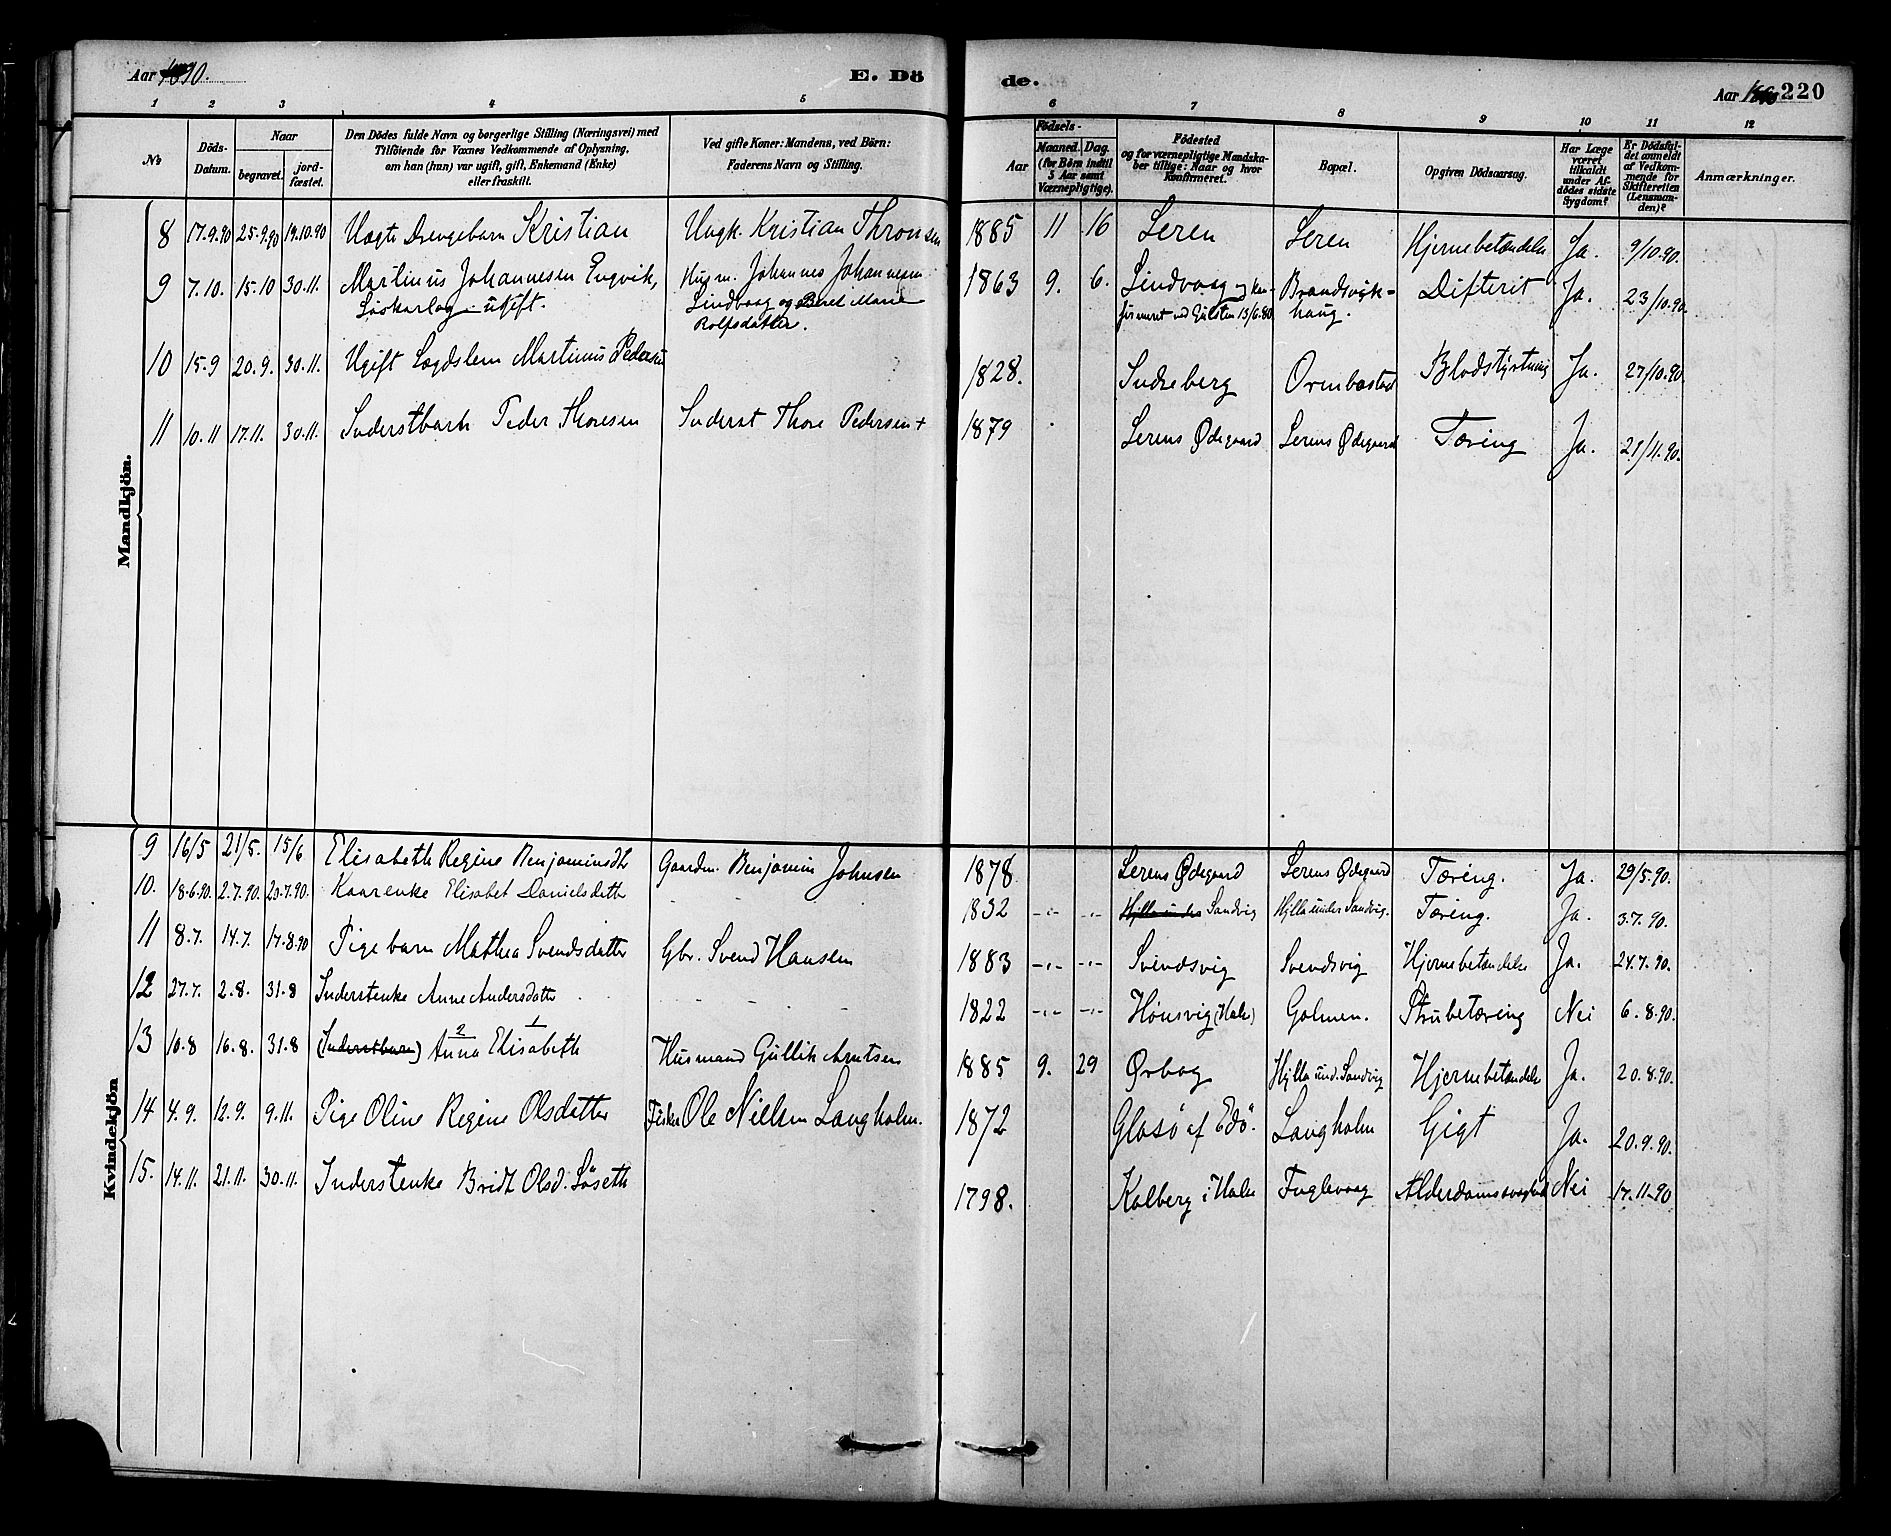 Aar 1890.
E. Dö
de.
Aar 220
1 2 3 4 5 6 7 8 9 10 11 12
No
Döds-Datum.
Naar
begravet.
jord-fæstet.
Den Dödes fulde Navn og borgerlige Stilling (Næringsvei) med
Tilföiende for Voxnes Vedkommende af Oplysning,
om han (hun) var ugift, gift, Enkemand (Enke)
eller fraskilt.
Ved gifte Koner: Mandens, ved Börn:
Faderens Navn og Stilling.
Födsels-
Aar
Maaned. Dag.
(for Börn indtil
5 Aar samt
Værnepligtige).
Födested
og for værnepligtige Mandska-
ber tillige: Naar og hvor
konfirmeret.
Bopæl.
Opgiven Dödsaarsag.
Har Læge
været
tilkaldt
under Af-
dödes sidste
Sygdom?
Er Dödsfal-
det anmeldt
af Vedkom-
mende for
Skifteretten
(Lensman-
den)?
Anmærkninger.
Mandkjön.
8 17.9.90 25.9.90 19.10.90 Drengebarn Kristian Ungk. Kristian Thronsen 1885 11 16 Leren Leren Hjernebetændelse Ja. 9/10.90.
9 7.10. 15.10 30.11. Martinus Johannesen Engvik, Husm. Johannes Johannesen 1863 9. 6. Lindvaag og kon- Brandsvik- Difterit Ja. 23/10.90.
ugift. Lindvaag og Beret Marie firmeret ved 15/6.80 haug.
Rolfsdatter.
10 15.9 20.9. 30.11. Ugift Lægdslem Martinus Pedersen 1828. Indreberg Ormbostad Blodstyrtning Ja. 27/10.90.
11 10.11 17.11. 30.11. Inderstbarn Peder Thoresen Inderst Thore Pedersen + 1879 Lerens Ødegaard Lerens Ødegaard Tæring Ja. 21/11.90.
Kvindekjön
9 16/5 21/5. 15/6 Elisabeth Regine Benjaminsdtr Gaardm. Benjamin Johnsen 1878 Lerens Ødegaard Lerens Ødegaard Tæring. Ja. 29/5.90.
10. 18.6.90. 2.7.90. 20.7.90. Kaarenke Elisabet Danielsdatter - - 1832 -.- -.- Hylla under Sandvig Hylla under Sandvig. Tæring. Ja. 3.7.90.
11 8.7. 14.7. 17.8.90 Pigebarn Mathea Svendsdatter Gbr. Svend Hansen 1883 -.- -.- Svendsvig Svendsvig Hjernebetændelse Ja. 24.7.90.
12 27.7. 2.8. 31.8 Inderstenke Anne Andersdatter - - - - 1822 -.- -.- Hönsvig (Halse) Golmen. Strubetæring Nei 6.8.90.
13 10.8 16.8. 31.8 (Inderstbarn) 2 Anna 1 Elisabeth Husmand Gullik Arntsen 1885 9. 29 Ørbog Hylla und. Sandvig Hjernebetændelse Ja. 20.8.90.
14 4.9. 12.9. 9.11. Pige Oline Regine Olsdatter Fisker Ole Nielsen Langholm. 1872 Glasö af Edö. Langholm Gigt Ja. 20.9.90.
15. 14.11. 21.11. 30.11. Inderstenke Bridt Olsd. Löseth 1798. Kalberg i Halse Fuglevaag Alderdomssvaghed Nei 17.11.90